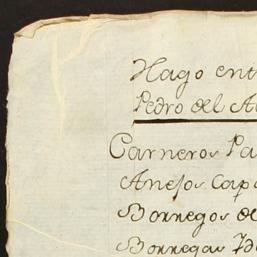 Hago ent
Pedro del A
Carneros Pa
Anejos Cap
Borregos de
Borregas